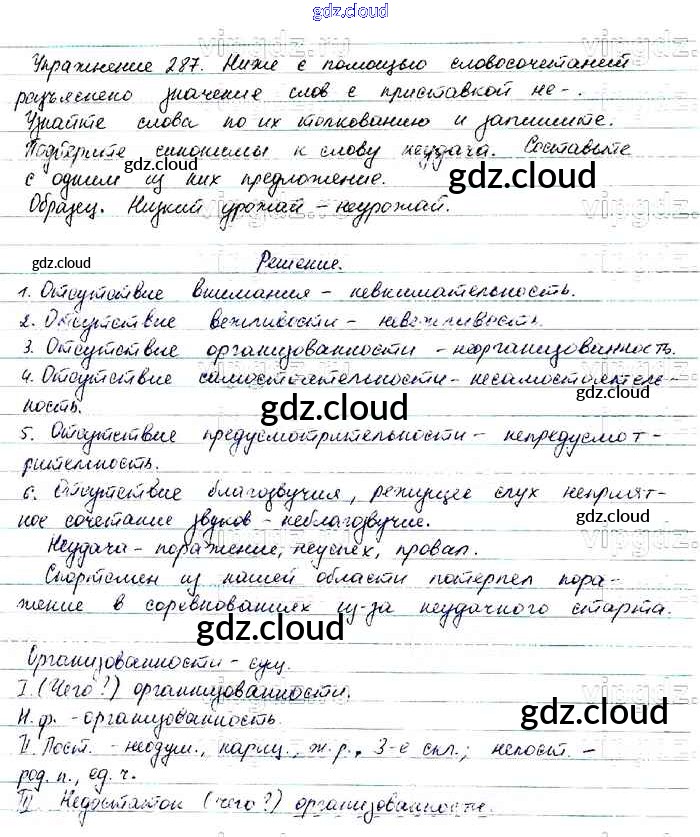 gdz.cloud
Упражнение 287. Ниже с помощью словосочетаний
разъяснено значение слов с приставкой не-.
Узнайте слова по их толкованию и запишите.
Подберите синонимы к слову неудача. Составьте
с одним из них предложение.
gdz.cloud
gdz.cloud
Образец. Низкий урожай - неурожай.
gdz.cloud
Решение.
gdz.cloud
1. Отсутствие внимания - невнимательность.
2. Отсутствие вежливости - невежливость.
3. Отсутствие организованности - неорганизованность.
4. Отсутствие самостоятельности - несамостоятель-
ность.
gdz.cloud
gdz.cloud
5. Отсутствие предусмотрительности - непредусмот-
рительность.
6. Отсутствие благозвучия, режущее слух неприят-
ное сочетание звуков - неблагозвучие.
gdz.cloud
Неудача - поражение, неуспех, провал.
gdz.cloud
Спортсмен из нашей области потерпел пора-
жение в соревнованиях из-за неудачного старта.
gdz.cloud
Организованности - сущ.
I. (Чего?) организованности.
Н.ф. - организованность.
gdz.cloud
II. Пост. - неодуш., нариц., ж.р., 3-е скл.; непост. -
род. п., ед. ч.
III Недостаток (чего?) организованности.
gdz.cloud